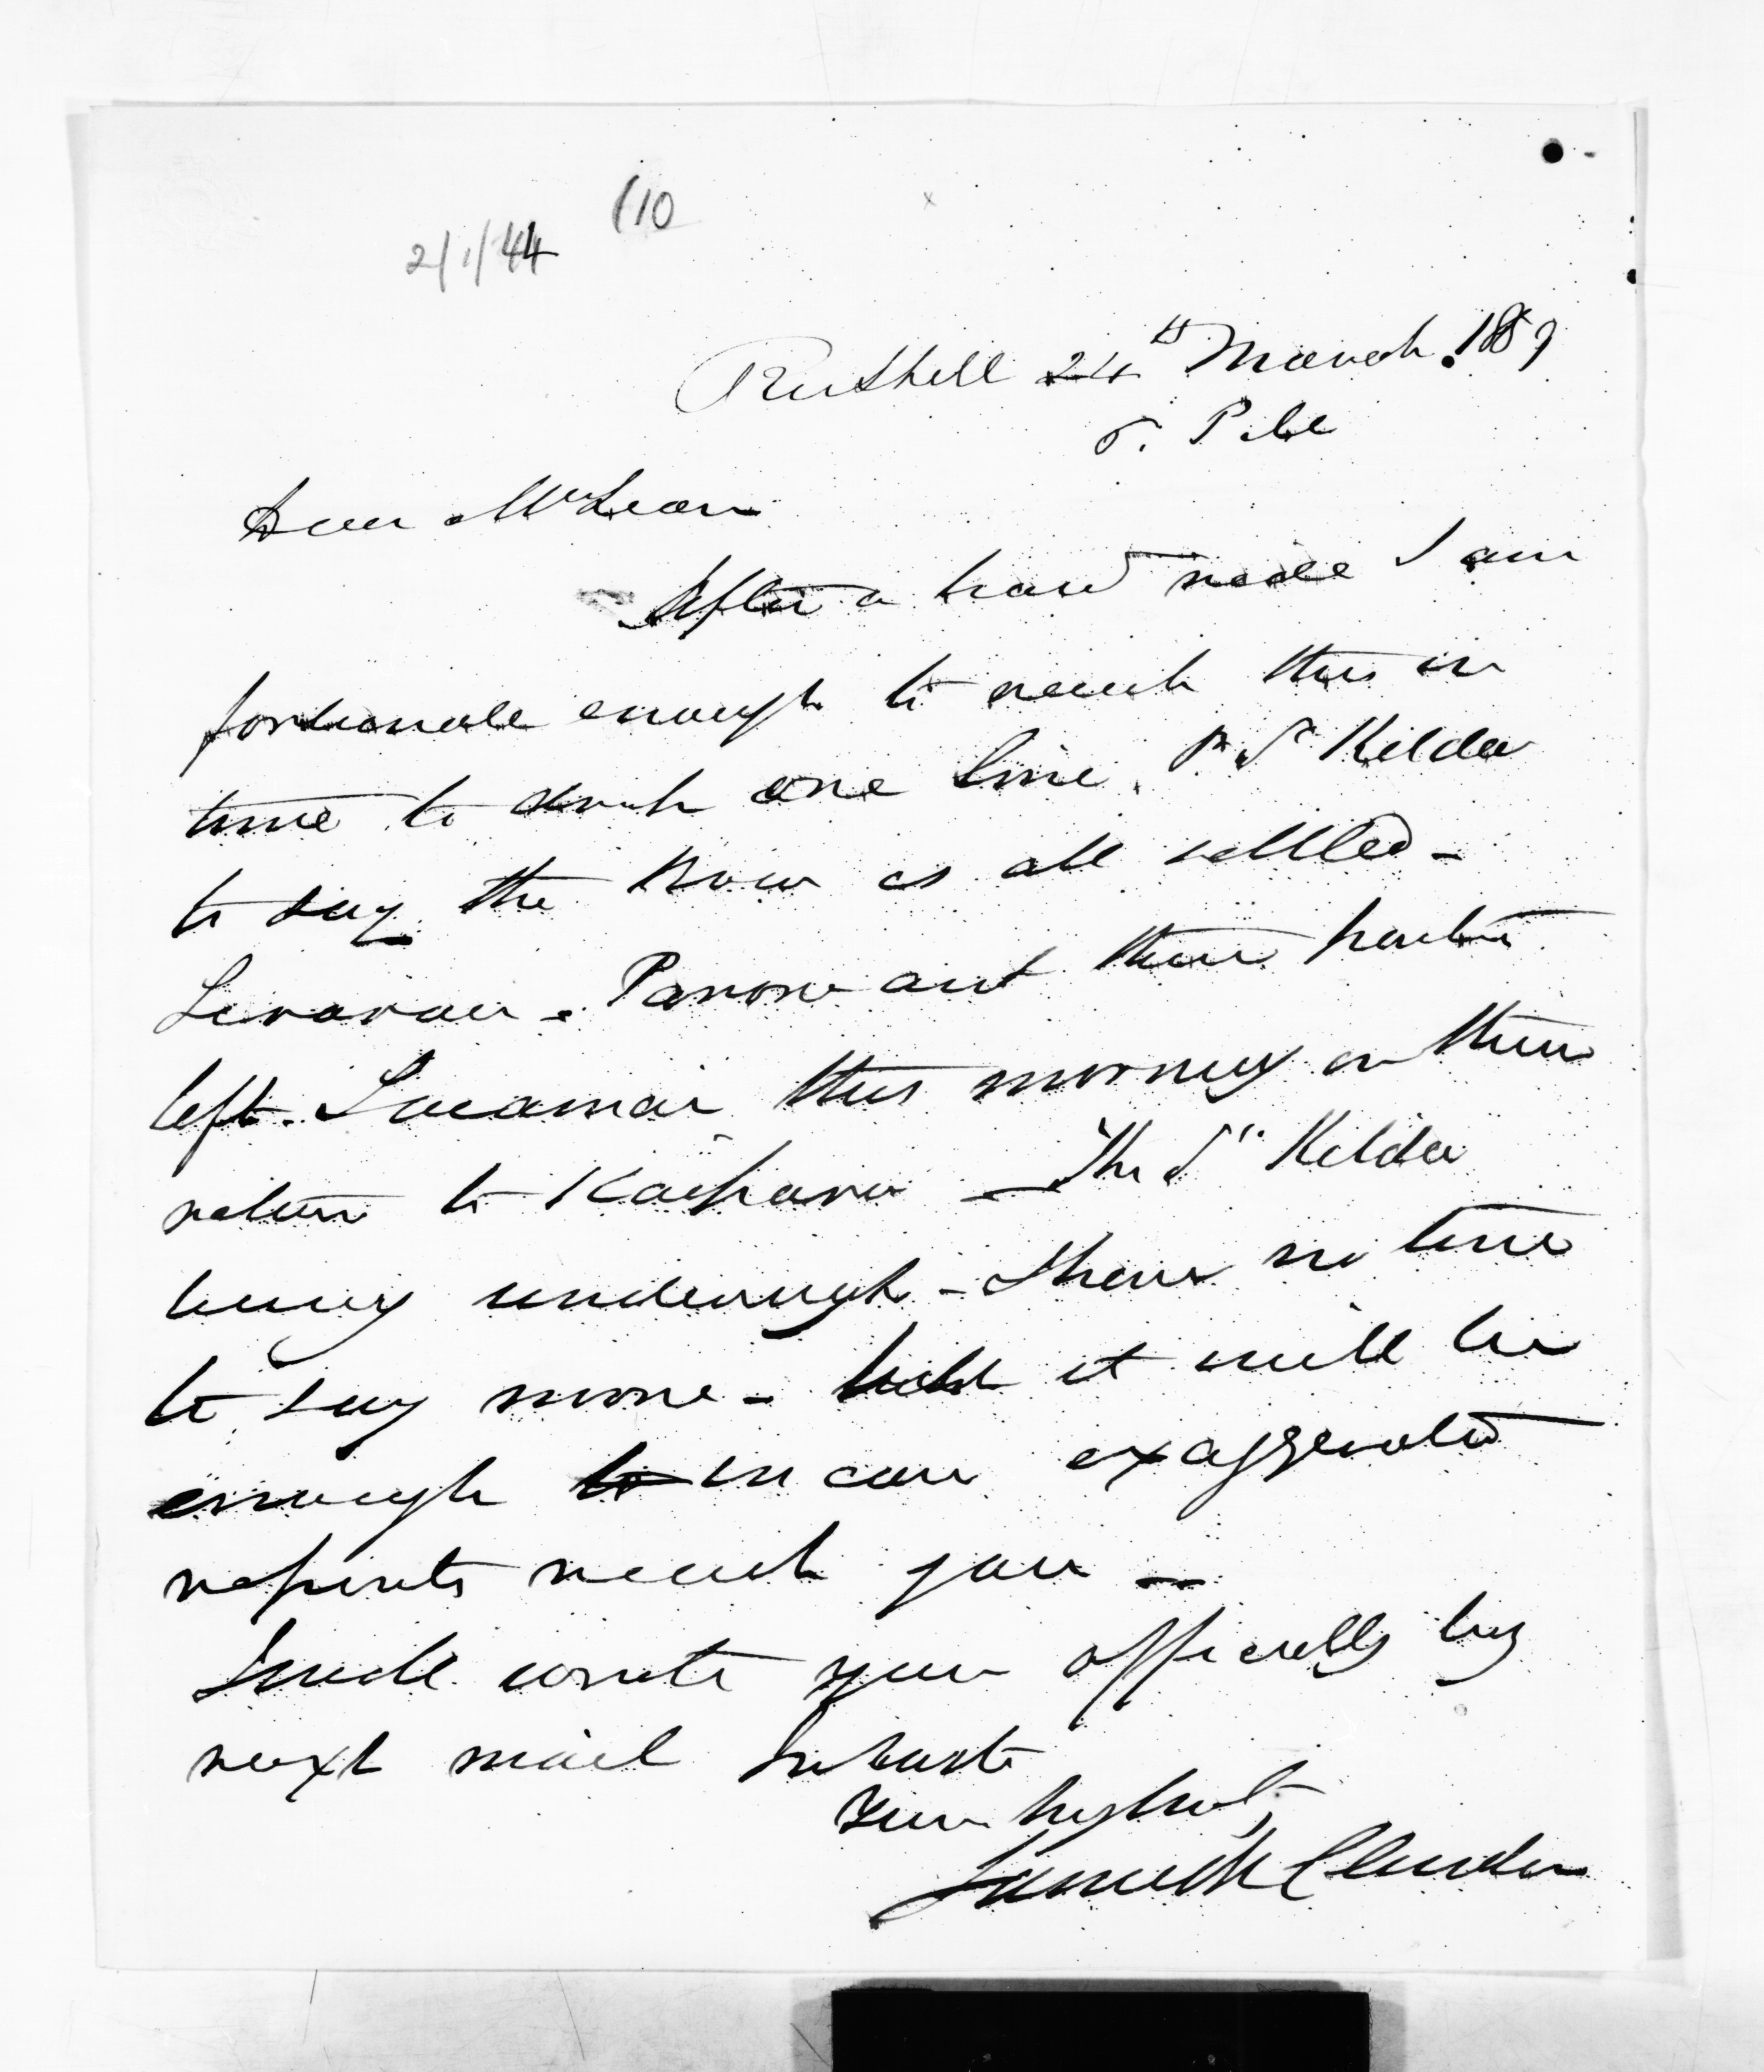 (10
2/1/44
Russell 24th March. 1869
5. P.M.
Dear McLean
After a hard ride I am
fortunate enough to reach this in
time to drop one line. Pr St Kilda
to say the Row is all settled -
Tirarau - Parore and their parties
left. this morning on their
return to Kaipara - The St Kilda
being underweigh - I have no time
to say more - but it will be
enough in case exaggerated
reports reach you -
I will write you officially by
next mail In haste
Yours
James R Clendon